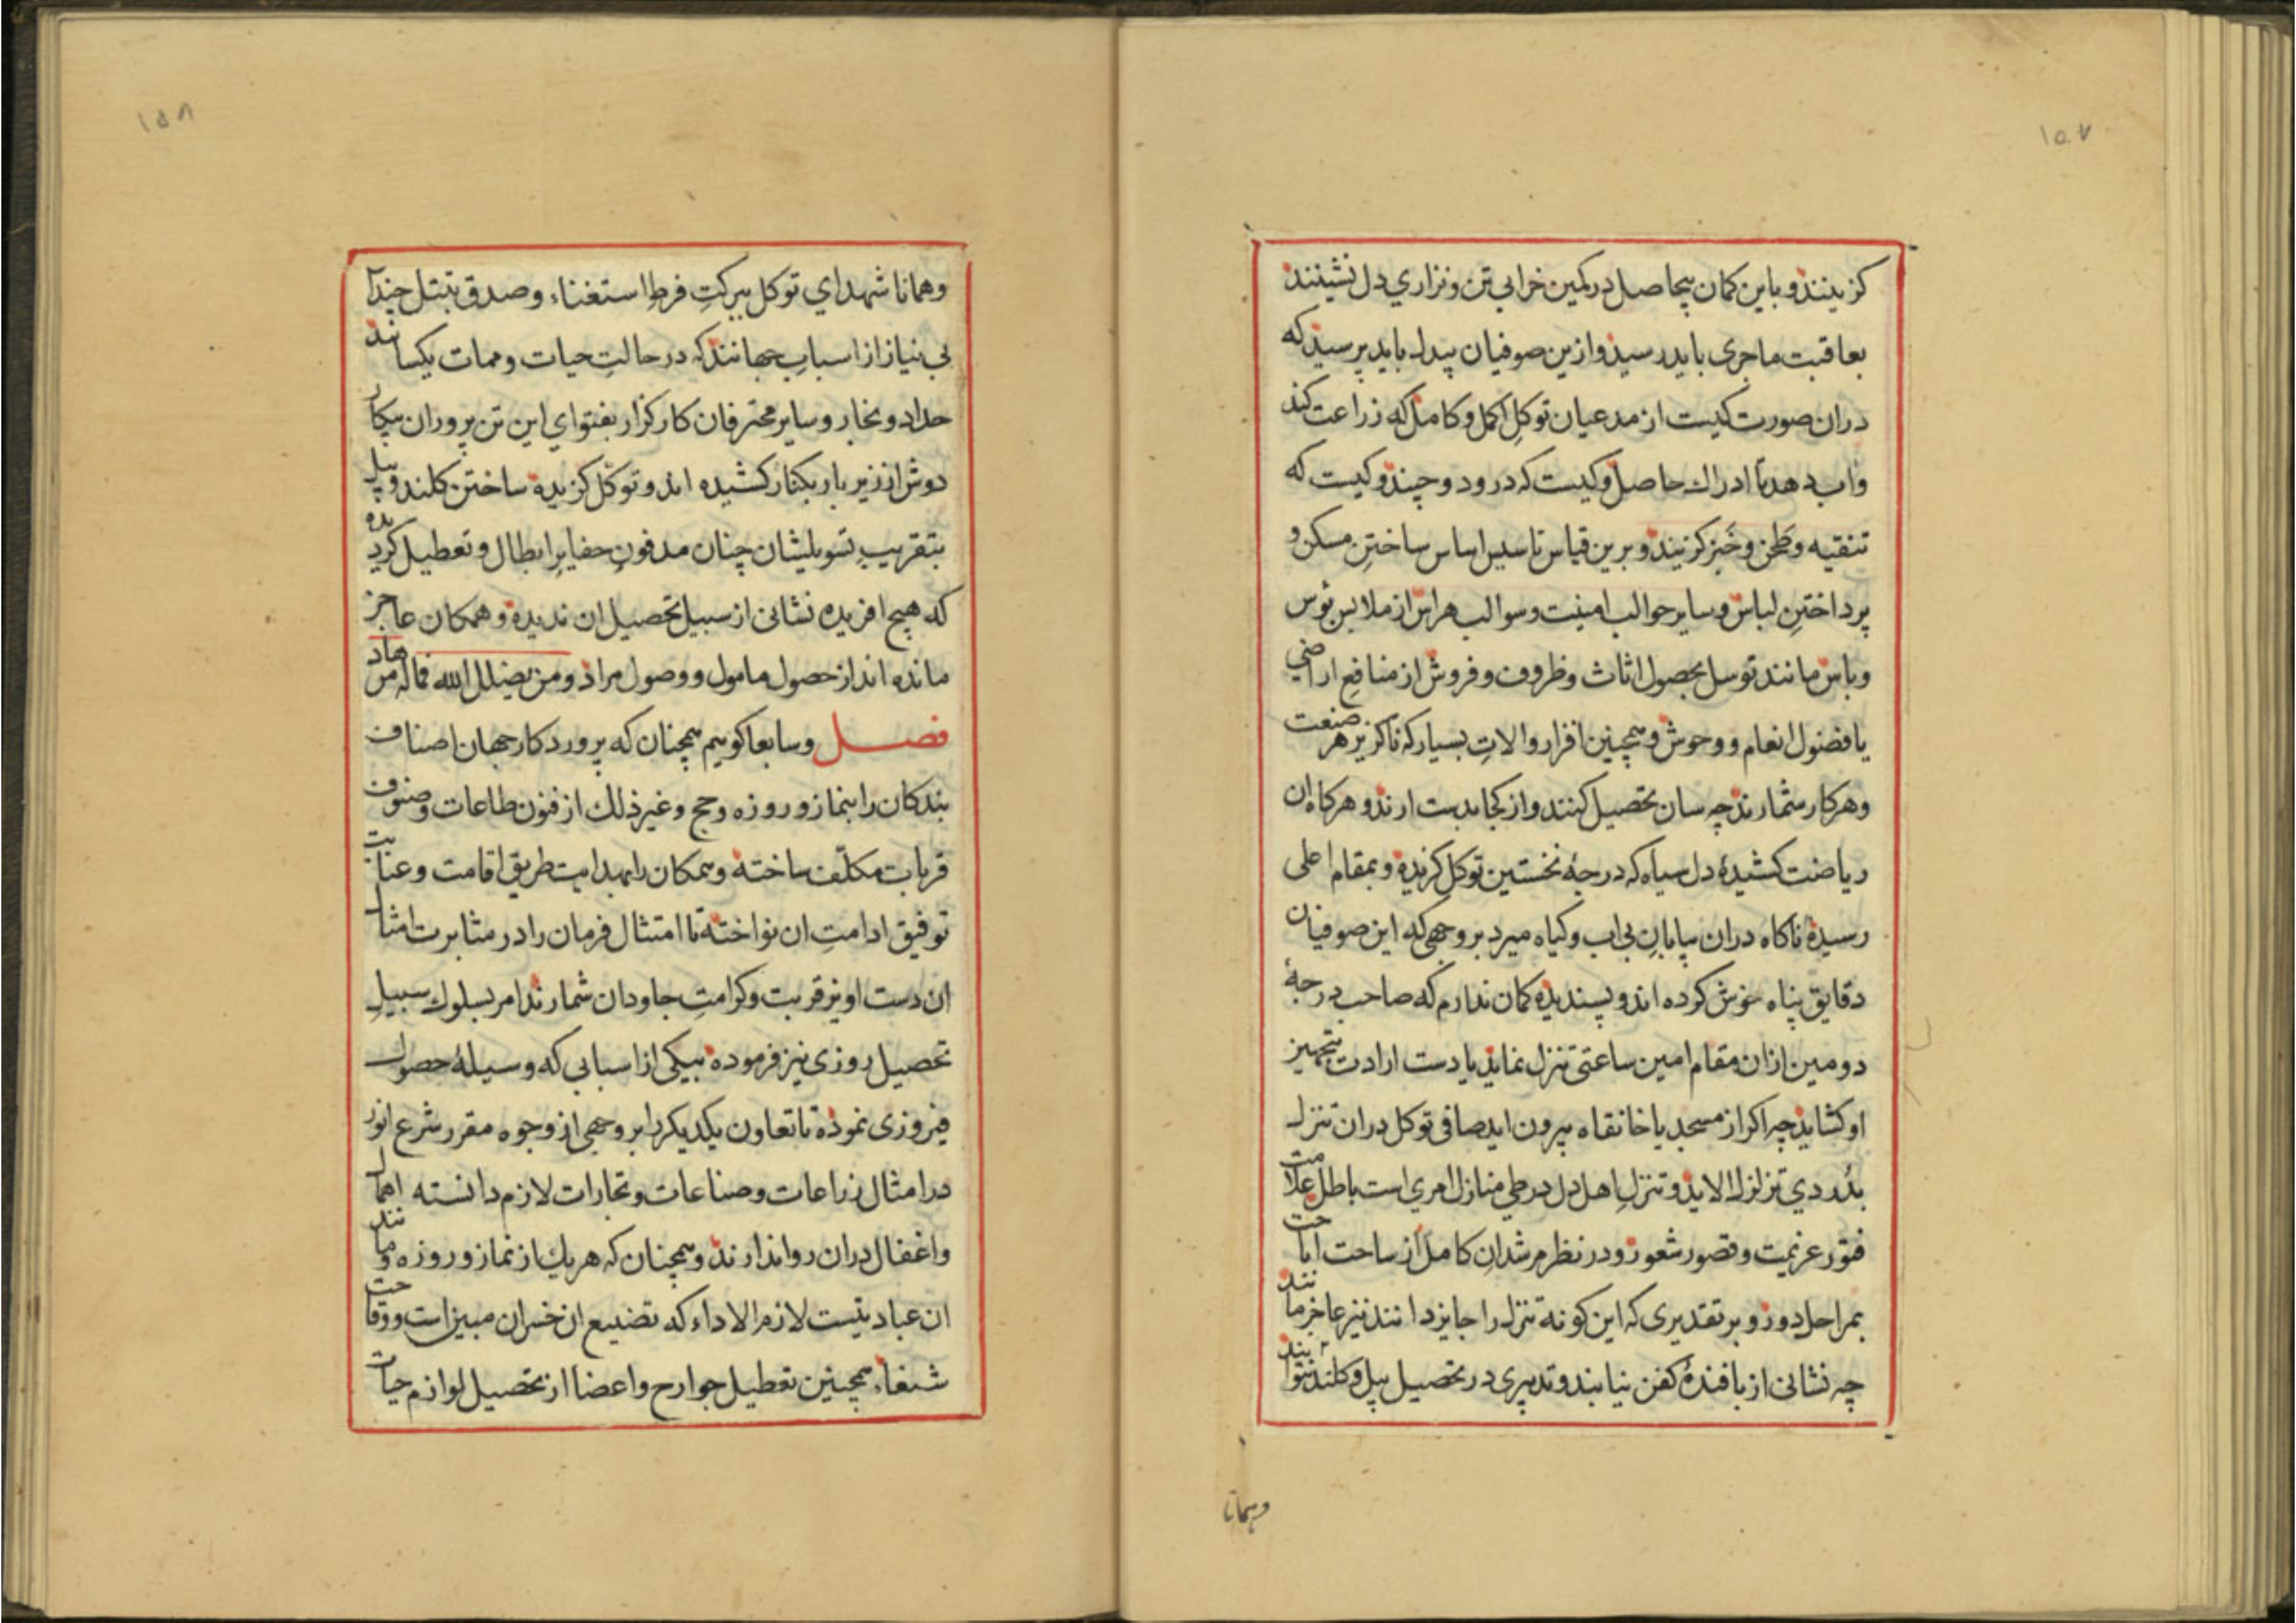 ۱۵۷
کزینند و باین کمان بیحاصل در کمین خرابی تن و نزاری دل نشینند
بعاقبت ماجری باید رسید و ازین صوفیان بیدل باید پرسید که
دران صورت کیست از مدعیان توکل اکمل و کامل که زراعت کند
واب دهد تا ادراک حاصل و کیست که درود و چیند و کیست که
تنقیه و طَحن و خَبز کزیند و برین قیاس تاسیس اساس ساختنِ مسکن و
پرداختنِ لباس و سایر جوالب امنیت و سوالب هراس از ملابس بُوس
و باس مانند توسل بحصول اثاث و ظروف و فروش از منافع اراضی
یا فضول انعام و وحوش و همچنین افزار و الاتِ بسیار که ناکزیر هر صنعت
و هر کار شمارند چه سان تحصیل کنند و از کجا بدست ارند و هرکاه ان
ریاضت کشیدۀ دل سیاه که درجۀ نخستین توکل کزیده و بمقام اعلی
رسیده ناکاه دران بیابانِ بی اب و کیاه میرد بر وجهی که این صوفیان
دقایق پناه خوش کرده اند و پسندیده کمان ندارم که صاحب درجۀ
دومین ازان مقام امین ساعتی تنزل نماید یا دست ارادت بتجهیز
او کشاید چه اکر از مسجد یا خانقاه بیرون اید صافی توکل دران تنزل
بدُردی تزلزل الاید و تنزلِ اهل دل در طی منازل امری است باطل علامت
فتور عزیمت و قصور شعور و در نظر مرشدانِ کامل از ساحت اباحت
بمراحل دور و بر تقدیری که این کونه تنزل را جایز دانند نیز عاجز مانند
چه نشانی از بافندۀ کفن نیابند و تدبیری در تحصیل بیل و کلند نتوانند
وهمانا
۱۵۸
وهمانا شهدای توکل ببرکتِ فرط استغناء و صدق تبتل چندان
بی نیاز از اسباب جهانند که در حالتِ حیات و ممات یکسانند
حداد و نجار و سایر محترفان کارکزار بفتوای این تن پروران بیکار
دوش از زیر بار بکنار کشیده اند و توکل کزیده ساختن کلند و بیل
بتقریبِ تسویلشان چنان مدفونِ حفایر ابطال و تعطیل کردیده
که هیچ افریده نشانی از سبیل تحصیل ان ندیده و همکان عاجز
مانده اند از حصول مامول و وصول مراد و من یضلل الله فما له من هاد
فصل وسابعا کوییم همچنان که پروردکار جهان اصناف
بندکان را بنماز و روزه و حج و غیر ذلك از فنون طاعات و صنوف
قربات مکلّف ساخته و همکان را بهدایت طریق اقامت و عنایت
توفیق ادامتِ ان نواخته تا امتثال فرمان را در مثابرت امثال
ان دست اویز قربت و کرامتِ جاودان شمارند امر بسلوك سبیلِ
تحصیل روزی نیز فرموده بیکی از اسبابی که وسیلۀ حصول
فیروزی نموده تا تعاون یکدیکر را بر وجهی از وجوه مقرر شرع انور
در امثال زراعات و صناعات و تجارات لازم دانسته اهمال
و اغفال دران روا ندارند و همچنان که هر یك از نماز و روزه و مانند
ان عبادتیست لازم الاداء که تضییع ان خسران مبین است و وقاحت
شنعاء همچنین تعطیل جوارح و اعضا از تحصیل لوازم حیات